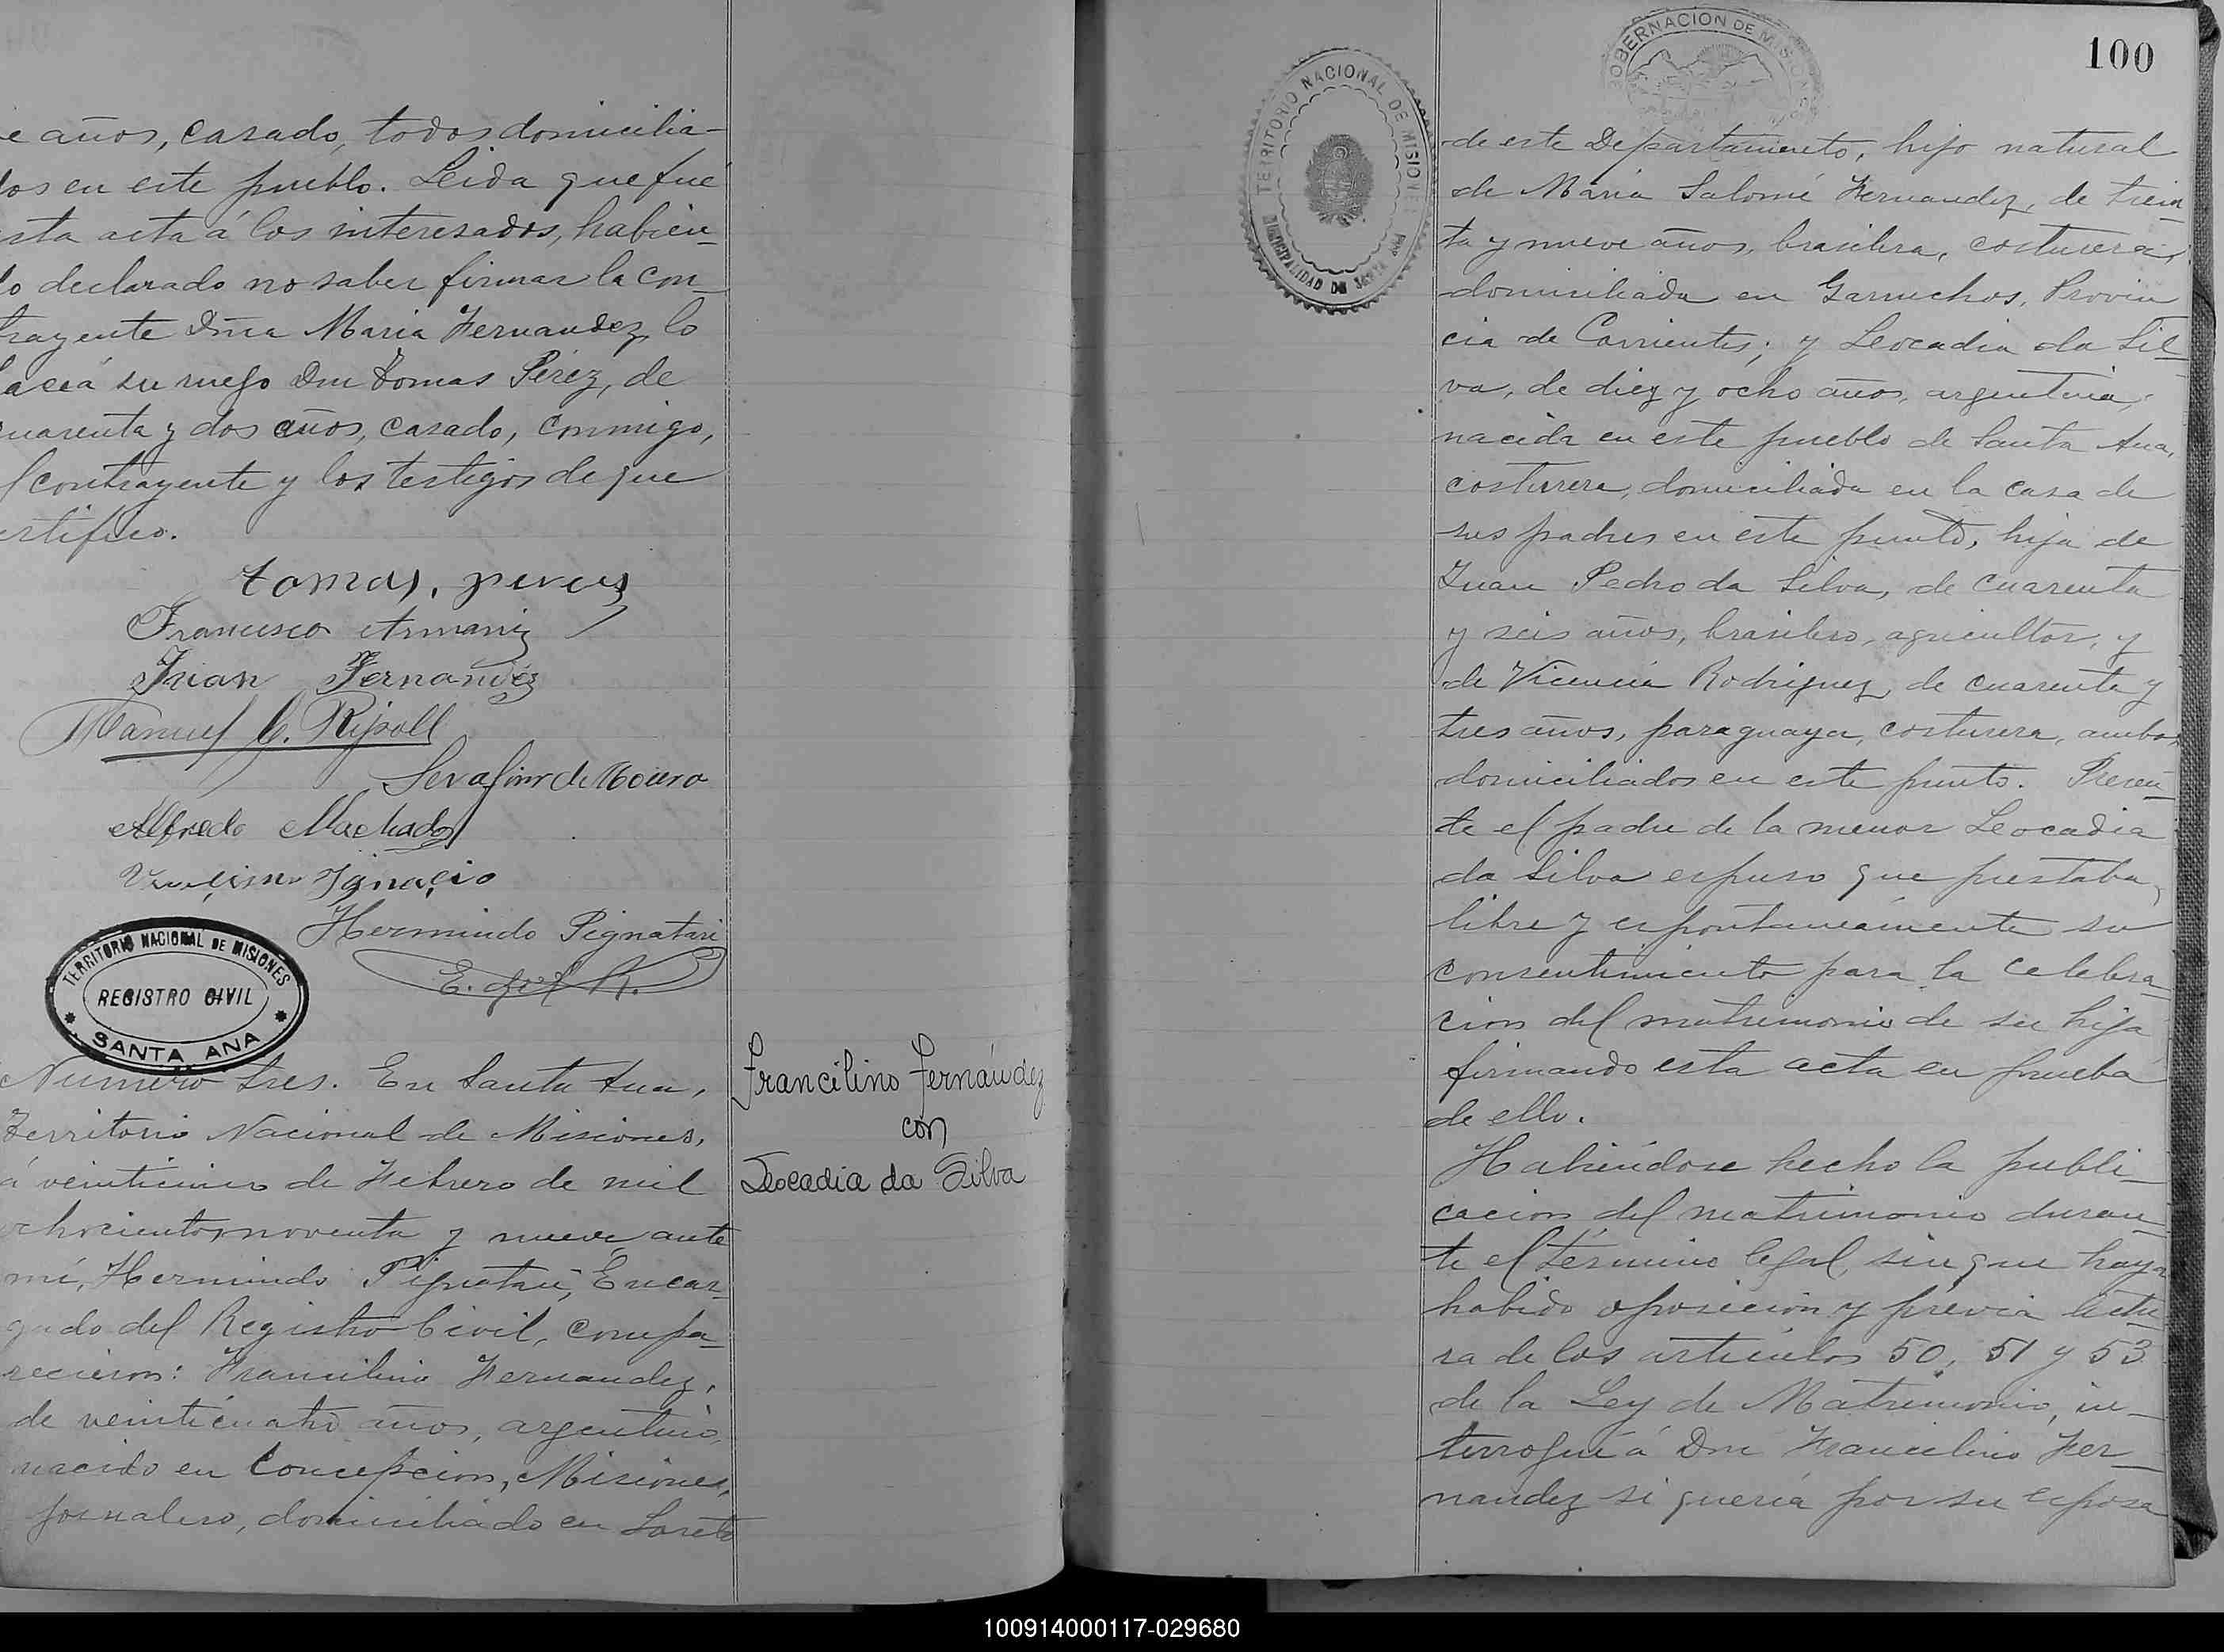 e años, casado, todos domicilia-
dos en este pueblo. Leida que fué
esta acta á los interesados, habien-
do declarado no saber firmar la con-
trayente Dña Maria Fernandez, lo
hace á su ruego Don Tomas Pérez, de
cuarenta y dos años, casado, conmigo,
el contrayente y los testigos de que
certifico.
tomas, peres
Francisco Armaniz
Juan Fernandez
Manuel C. Ripoll
Serafim de Moura
Alfredo Machado
Ignacio
Hermindo Pignatari
E. del R.
TERRITORIO NACIONAL DE MISIONES
REGISTRO CIVIL
SANTA ANA
Numero tres. En Santa Ana,
Territorio Nacional de Misiones,
á veinticinco de Febrero de mil
ochocientos noventa y nueve, ante
mi, Hermindo Pignatari, Encar-
gado del Registro Civil, compa-
recieron: Francilino Fernandez,
de veinticuatro años, argentino,
nacido en Concepcion, Misiones,
jornalero, domiciliado en Loreto
Francilino Fernández
con
Leocadia da Silva
TERRITORIO NACIONAL DE MISIONES
MUNICIPALIDAD DE SANTA ANA
GOBERNACION DE MISIONES
100
de este Departamento, hijo natural
de Maria Salomé Fernandez, de trein-
ta y nueve años, brasilera, costurera,
domiciliada en Garruchos, Provin
cia de Corrientes; y Leocadia da Sil-
va, de diez y ocho años, argentina,
nacida en este pueblo de Santa Ana,
costurera, domiciliada en la casa de
sus padres en este punto, hija de
Juan Pedro da Silva, de cuarenta
y seis años, brasilero, agricultor, y
de Vicencia Rodriguez, de cuarenta y
tres años, paraguaya, costurera, ambos
domiciliados en este punto. Presen-
te el padre de la menor Leocadia
da Silva espuso que prestaba,
libre y espontaneamente su
consentimiento para la celebra-
cion del matrimonio de su hija
firmando esta acta en prueba
de ello.
Habiéndose hecho la publi-
cacion del matrimonio duran-
te el término legal, sin que haya
habido oposicion y prévia lectu-
ra de los articulos 50, 51 y 53
de la Ley de Matrimonio, in-
terrogué á Don Francilino Fer-
nandez si queria por su esposa
100914000117-029680